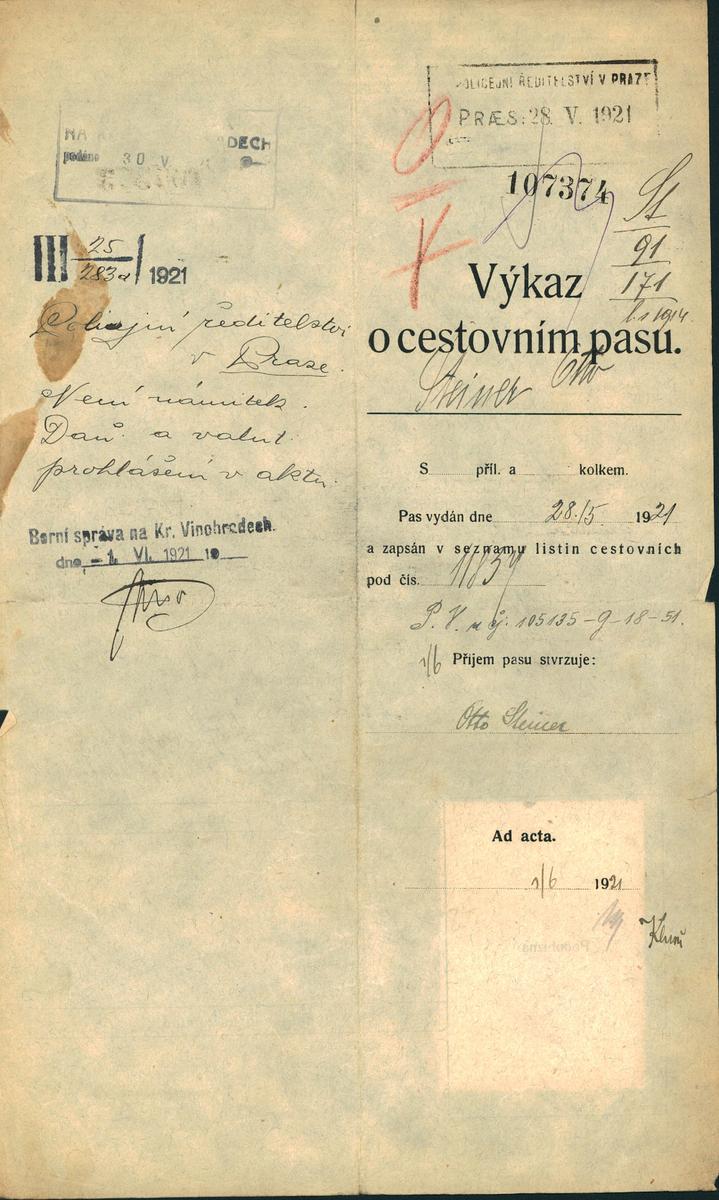 DECH
podáno 30 V
III 25/283a / 1921
Policejní ředitelství
v Praze.
Není námitek.
Daň. a valut.
prohlášení v aktu.
Berní správa na Kr. Vinohradech.
dne - 1. VI. 1921 19
POLICEJNÍ ŘEDITELSTVÍ V PRAZE
PRÆS: 28. V. 1921
107374
St
91
171
Výkaz
o cestovním pasu.
Steiner Otto
S příl. a kolkem.
Pas vydán dne 28./5. 1921
a zapsán v seznamu listin cestovních
pod čís.
105135-9-18-51.
1/6 Příjem pasu stvrzuje:
Otto Steiner
Ad acta.
1/6 1921